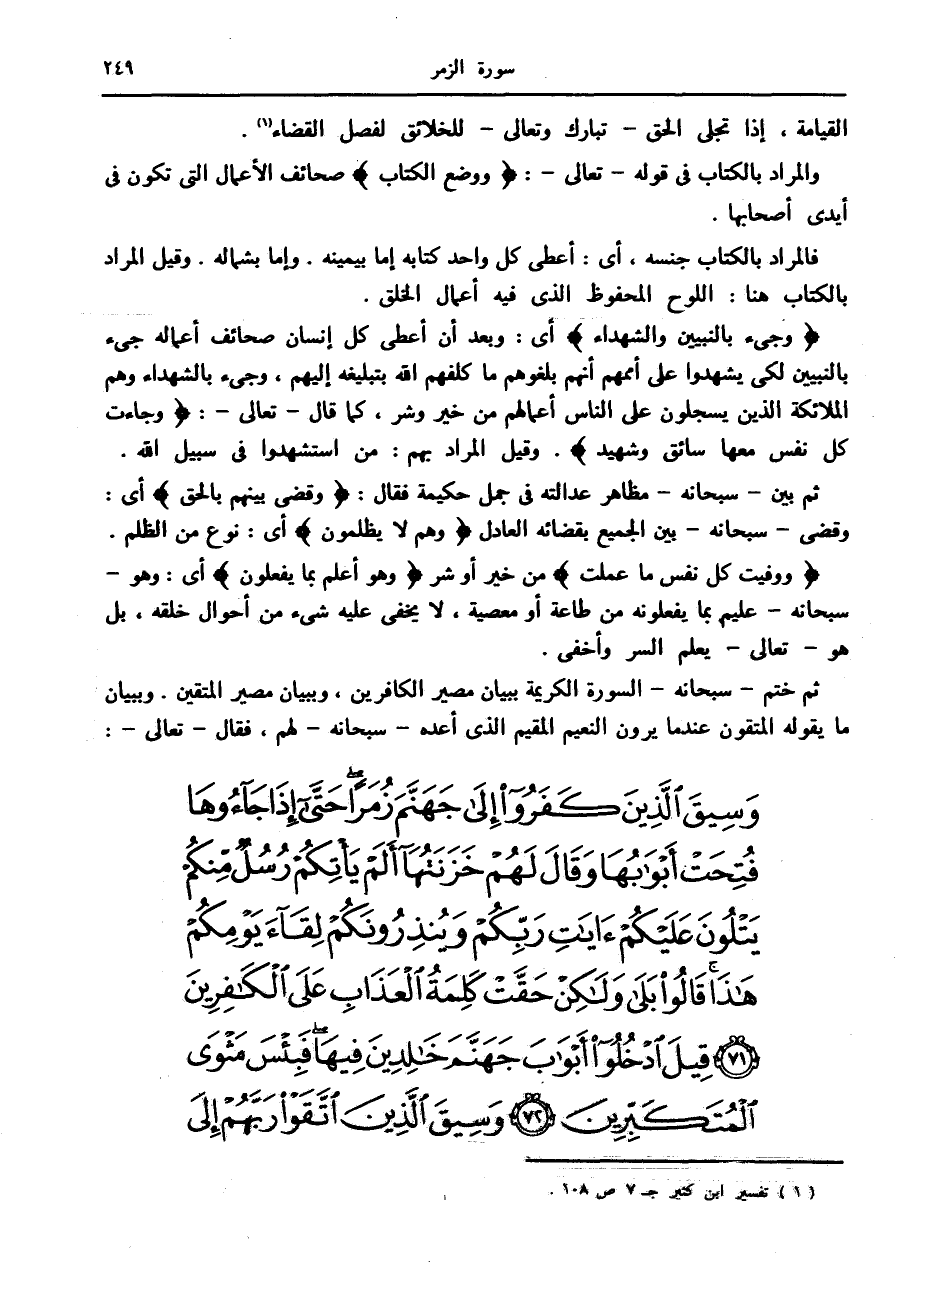 سورة الزمر ٢٤٩
القيامة ، إذا تجلى الحق – تبارك وتعالى – للخلائق لفصل القضاء(١) .
والمراد بالكتاب فى قوله – تعالى – : ﴿ ووضع الكتاب ﴾ صحائف الأعمال التى تكون فى
أيدى أصحابها .
فالمراد بالكتاب جنسه ، أى : أعطى كل واحد كتابه إما بيمينه . وإما بشماله . وقيل المراد
بالكتاب هنا : اللوح المحفوظ الذى فيه أعمال الخلق .
﴿ وجىء بالنبيين والشهداء ﴾ أى : وبعد أن أعطى كل إنسان صحائف أعماله جىء
بالنبيين لكى يشهدوا على أممهم أنهم بلغوهم ما كلفهم الله بتبليغه إليهم ، وجىء بالشهداء وهم
الملائكة الذين يسجلون على الناس أعمالهم من خير وشر ، كما قال – تعالى – : ﴿ وجاءت
كل نفس معها سائق وشهيد ﴾ . وقيل المراد بهم : من استشهدوا فى سبيل الله .
ثم بين – سبحانه – مظاهر عدالته فى جمل حكيمة فقال : ﴿ وقضى بينهم بالحق ﴾ أى :
وقضى – سبحانه – بين الجميع بقضائه العادل ﴿ وهم لا يظلمون ﴾ أى : نوع من الظلم .
﴿ ووفيت كل نفس ما عملت ﴾ من خير أو شر ﴿ وهو أعلم بما يفعلون ﴾ أى : وهو –
سبحانه – عليم بما يفعلونه من طاعة أو معصية ، لا يخفى عليه شىء من أحوال خلقه ، بل
هو – تعالى – يعلم السر وأخفى .
ثم ختم – سبحانه – السورة الكريمة ببيان مصير الكافرين ، وببيان مصير المتقين . وببيان
ما يقوله المتقون عندما يرون النعيم المقيم الذى أعده – سبحانه – لهم ، فقال – تعالى – :
وَسِيقَ ٱلَّذِينَ كَفَرُوٓاْ إِلَىٰ جَهَنَّمَ زُمَرًاۖ حَتَّىٰٓ إِذَا جَآءُوهَا
فُتِحَتْ أَبْوَٰبُهَا وَقَالَ لَهُمْ خَزَنَتُهَآ أَلَمْ يَأْتِكُمْ رُسُلٌ مِّنكُمْ
يَتْلُونَ عَلَيْكُمْ ءَايَٰتِ رَبِّكُمْ وَيُنذِرُونَكُمْ لِقَآءَ يَوْمِكُمْ
هَٰذَاۚ قَالُواْ بَلَىٰ وَلَٰكِنْ حَقَّتْ كَلِمَةُ ٱلْعَذَابِ عَلَى ٱلْكَٰفِرِينَ
﴿٧١﴾ قِيلَ ٱدْخُلُوٓاْ أَبْوَٰبَ جَهَنَّمَ خَٰلِدِينَ فِيهَاۖ فَبِئْسَ مَثْوَى
ٱلْمُتَكَبِّرِينَ ﴿٧٢﴾ وَسِيقَ ٱلَّذِينَ ٱتَّقَوْاْ رَبَّهُمْ إِلَى
( ١ ) تفسير ابن كثير جـ ٧ ص ١٠٨ .